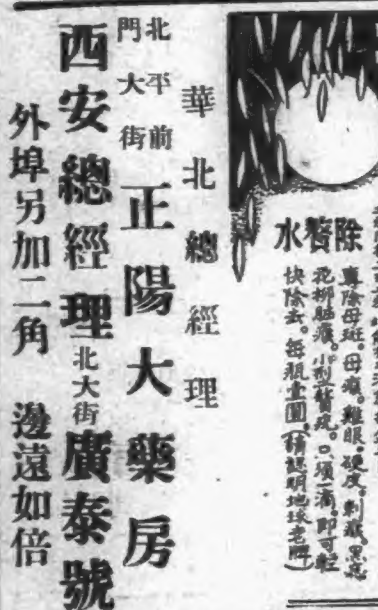 除贅水
專除母斑。母痣。雞眼。硬皮。刺瘊。黑痣
花柳 瘊。小型贅疣。只須一滴。即可輕
快除去。每瓶壹圓。(請認明地球老牌)
華北總經理
北平前門大街 正陽大藥房
西安總經理 北大街 廣泰號
外埠另加二角 邊遠如倍